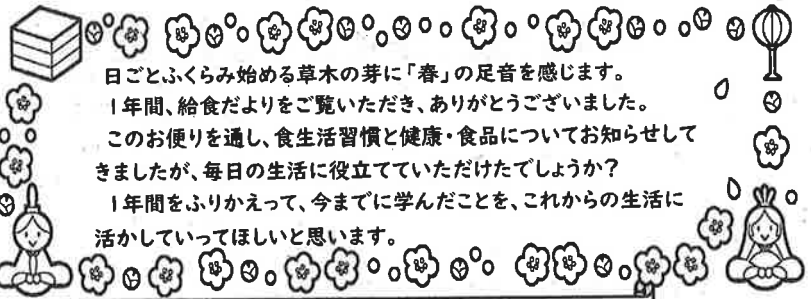 日ごとふくらみ始める草木の芽に「春」の足音を感じます。
1年間、給食だよりをご覧いただき、ありがとうございました。
このお便りを通し、食生活習慣と健康・食品についてお知らせして
きましたが、毎日の生活に役立てていただけたでしょうか?
1年間をふりかえって、今までに学んだことを、これからの生活に
活かしていってほしいと思います。